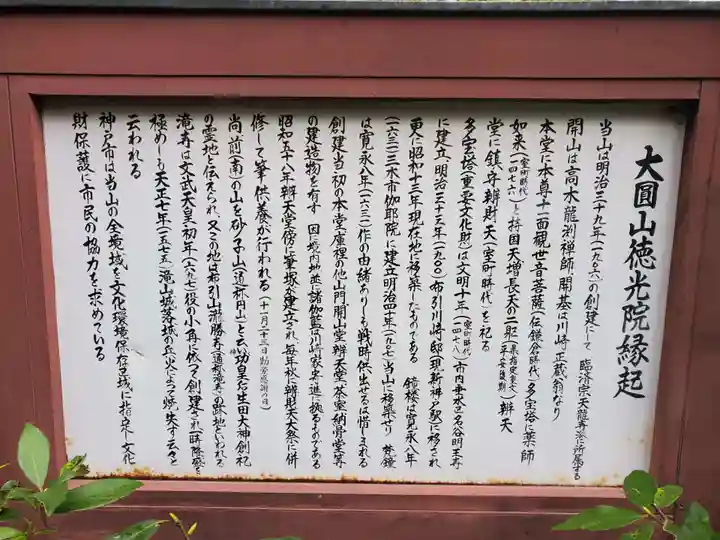 大圓山徳光院縁起
当山は明治三十九年(一九〇六)の創建にして 臨済宗天龍寺派に所属する
開山は高木龍淵禅師、開基は川崎正蔵翁なり
本堂に本尊十一面観世音菩薩(伝鎌倉時代)多宝塔に薬師
如来(室町時代一四七六)と持国天増長天の二躯(県指定重文平安後期)辨天
堂に鎮守辨財天(室町時代)を祀る
多宝塔(重要文化財)は文明十年(室町時代一四七八)市内垂水区名谷明王寺
に建立、明治三十三年(一九〇〇)布引川崎邸(現新神戸駅)に移され
更に昭和十三年現在地に移築したものである 鐘楼は寛永八年
(一六三一)三木市伽耶院に建立明治四十年(一九〇七)当山に移築せり 梵鐘
は寛永八年(一六三一)作の由緒ありしも戦時供出せるは惜しまれる
創建当初の本堂庫裡の他山門、開山堂、辨天堂、茶室、納骨堂等
の建造物を有す 因に境内地並に諸伽藍は川崎家寄進に拠るものである
昭和五十八年辨天堂傍に筆塚が建立され、毎年秋に辨財天大祭に併
修して筆供養が行われる(十一月二十三日勤労感謝の日)
尚前(南)の山を砂子山(通称円山)と云い功皇后生田大神創祀
の霊地と伝えられ、又この地は布引山滝勝寺(通称滝寺)の跡地といわれる
滝寺は文武天皇初年(六九七)役の小角に依って創建され一時隆盛を
極めしも天正七年(一五七五)滝山城落城の兵火によって焼失すと
云われる
神戸市は当山の全境域を文化環境保存区域に指定し文化
財保護に市民の協力を求めている